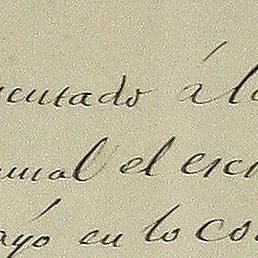 mentado á la
unal el escr
ayó en lo co